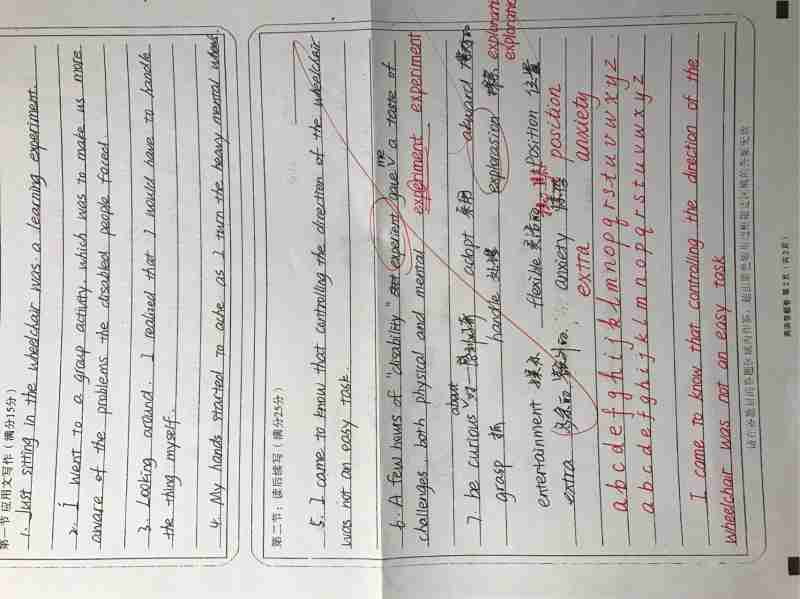 第一节 应用文写作（满分15分）
1. Just sitting in the wheelchair was a learning experiment.
2. I went to a group activity which was to make us more
aware of the problems the disabled people faced.
3. Looking around. I realized that I would have to handle
the thing myself.
4. My hands started to ache as I turn the heavy mental wheel.
第二节：读后续写（满分25分）
5. I came to know that controlling the direction of the wheelchair
was not an easy task.
6. A few hours of "disability" experient gave me a taste of
challenges both physical and mental experiment experiment
7. be curious about 对 adopt 采用 akward
grasp 抓 handle 处理 explorasion 探索 exploration
exploration
entertainment 娱乐 flexible 灵活的 position 位置
extra 额外的 anxiety position
extra anxiety
a b c d e f g h i j k l m n o p q r s t u v w x y z
a b c d e f g h i j k l m n o p q r s t u v w x y z
I came to know that controlling the direction of the
wheelchair was not an easy task
请在各题目的答题区域内作答，超出黑色矩形边框限定区域的答案无效
英语答题卷 第2页（共2页）